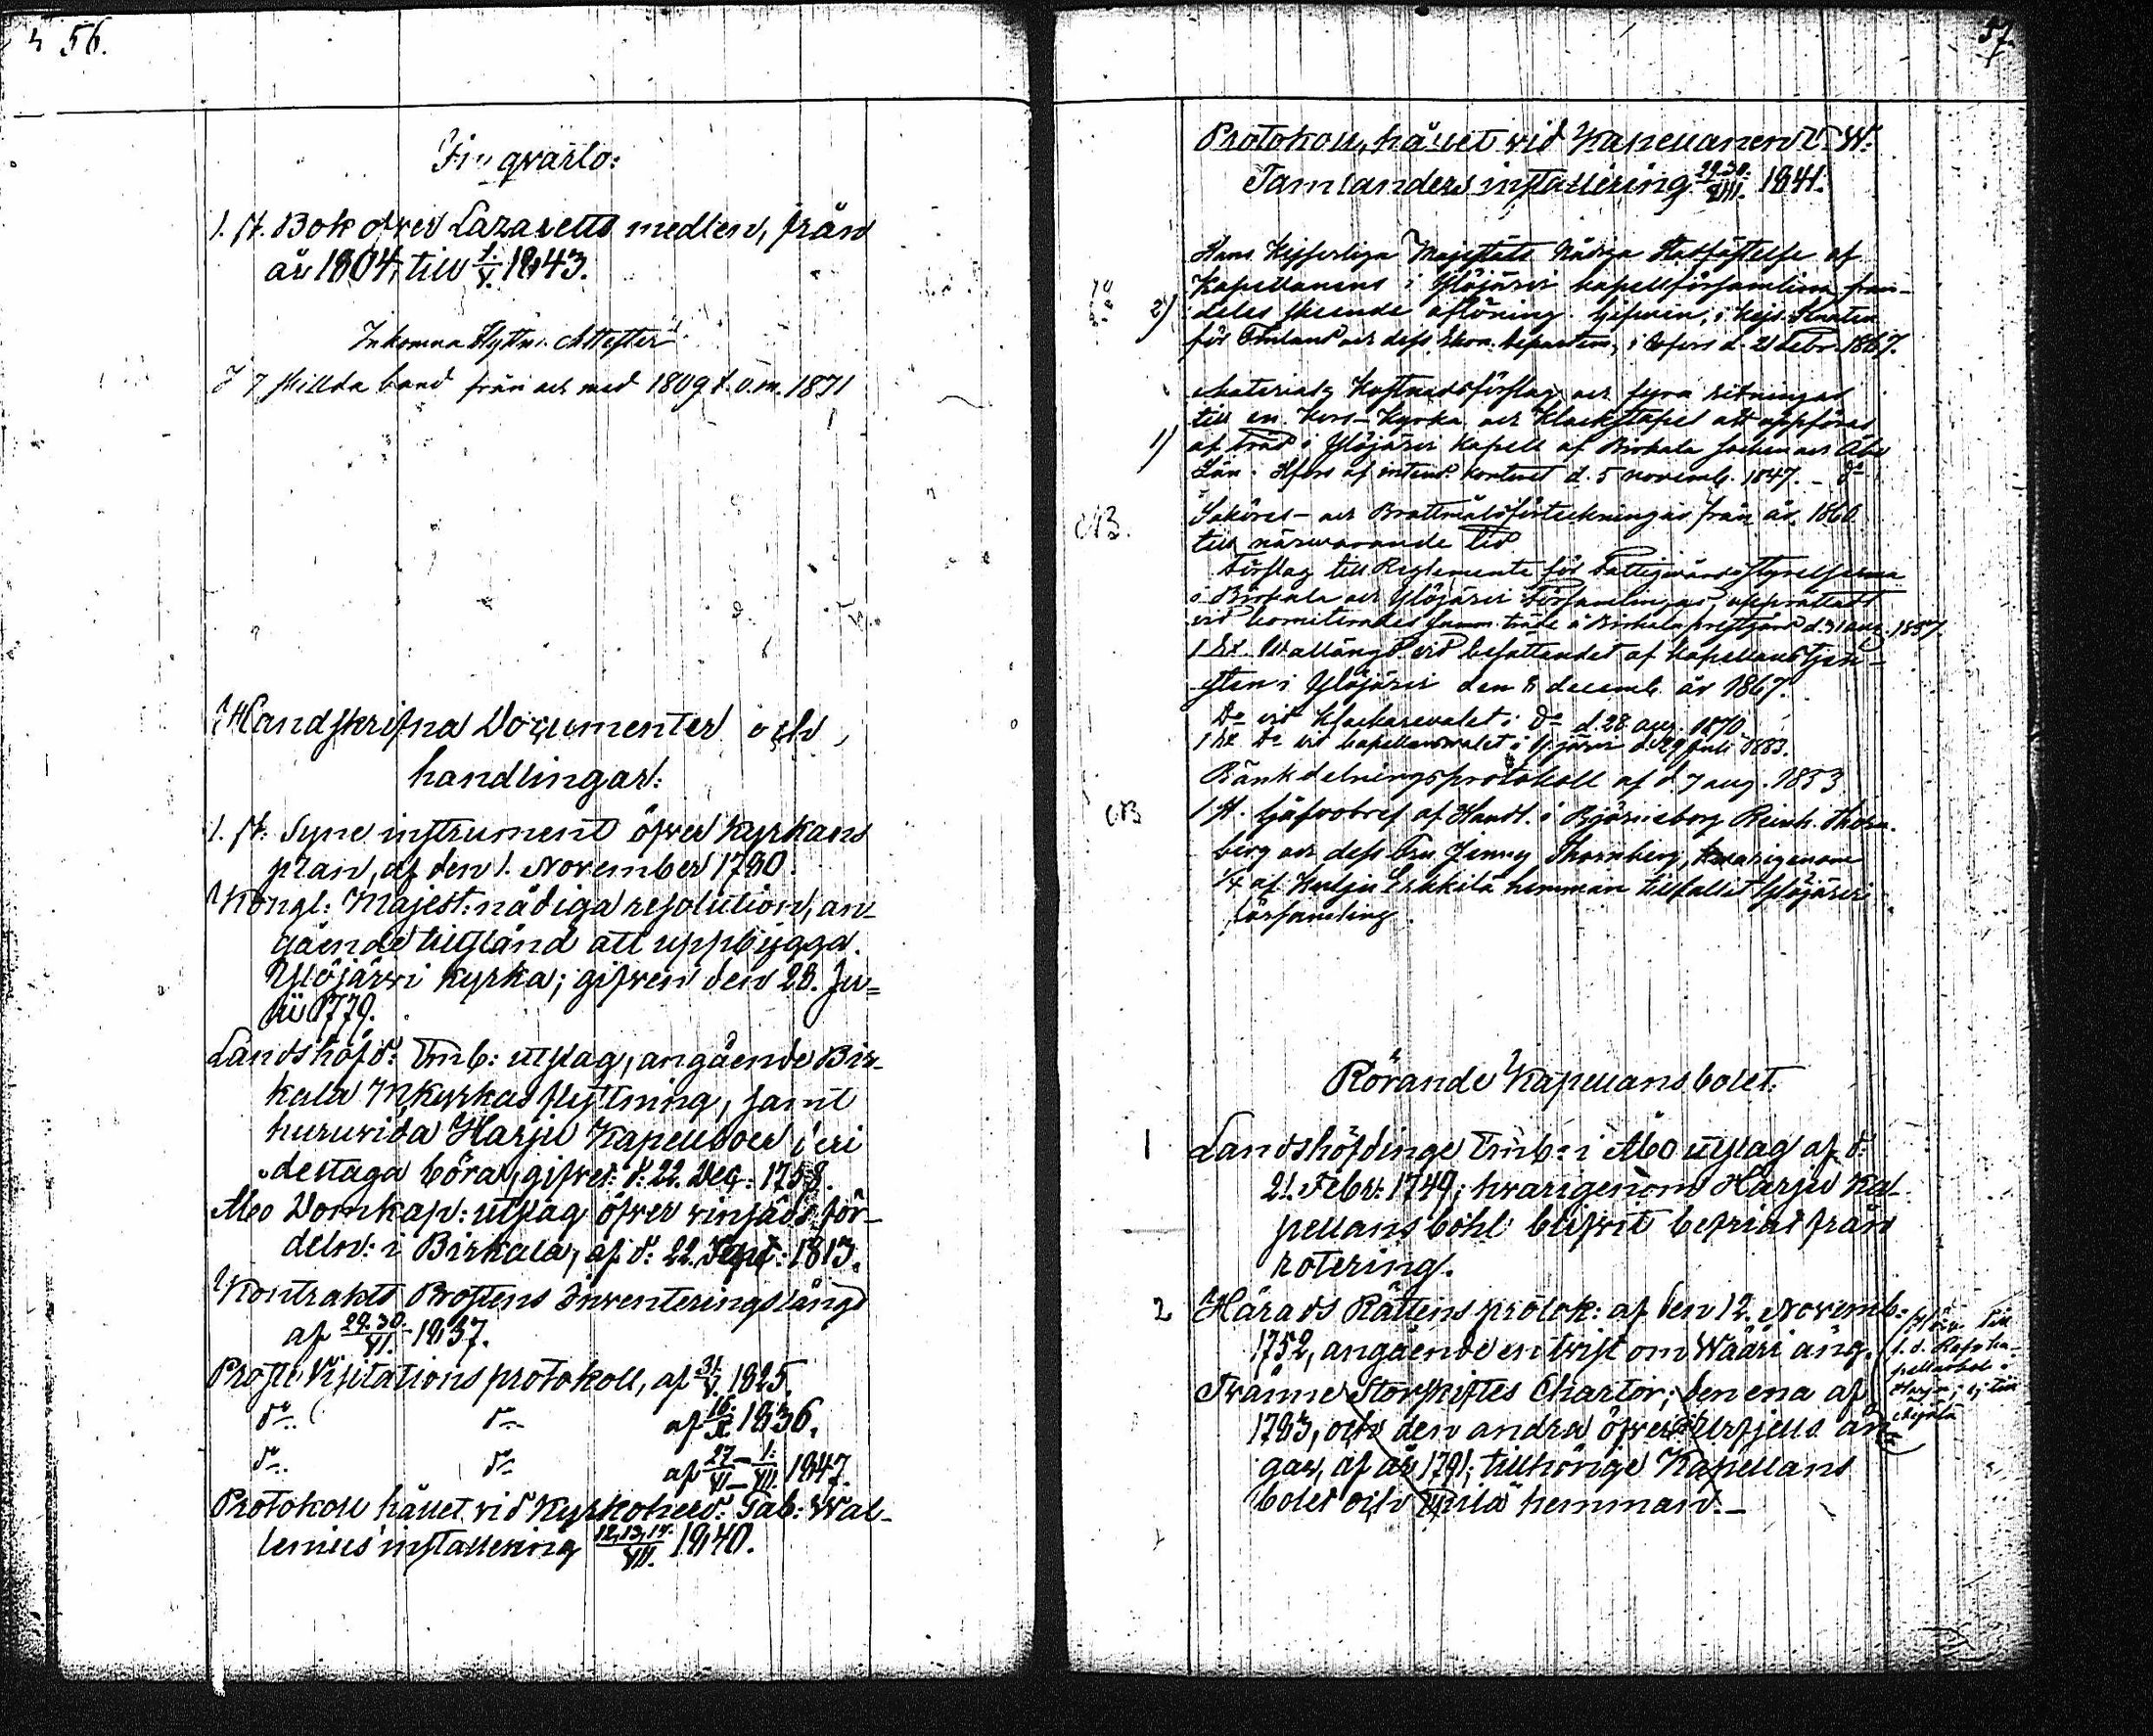 56.
In qvarto:
1. st. Bok öfver Lazaretts medlen, från
år 1804, till 1/V. 1843.
Inkomna Flyttn. Attester
I 7 skillda band från och med 1809 t.o.m. 1871
Handskrifna Documenter och
handlingar:
1. st. Syne instrument öfver Kyrkans
plan, af den 1. November 1780.
Kongl: Majest: nådiga resolution, an-
gående tillstånd att uppbygga
Ylöjärvi Kyrka; gifven den 28. Ju-
lii 1779.
Landshöfd: Emb: utslag, angående Bir-
kala Kyrkas flyttning, samt
huruvida Harju Kapellboer i eri
deltaga böra, gifvet: d: 22. Dec: 1758.
Åbo Domkap: utslag öfver vinjäds för-
deln: i Birkala, af d: 22. Sept: 1813.
Kontrakts Prostens Inventeringslängd
af 29.30/VI. 1837.
Prosts Visitations protokoll, af 31/V. 1825.
do do af 16/X 1836.
do do af 27/VI – 1/VII. 1847.
Protokoll hållet vid Kyrkoherd: Gab: Wal-
lenius' installering 12,13,14/VII. 1840.
57.
Protokoll, hållet vid Kapellanen W.
Tamlanders installering 29.30/VIII. 1841.
Hans Kejserliga Majestäts Nådiga Stadfästelse af
Kapellanens i Ylöjärvi kapellförsamling fram-
2) deles skeende aflöning. Gifven, i Kejs. Senaten
för Finland och dess Ekon. departem, i Hfors d. 21 Febr. 1867.
Material & Kostnadsförslag och fyra ritningar
till en Kors-Kyrka och Klockstapel att uppföras
1) af träd i Ylöjärvi Kapell af Birkala Socken och Åbo
Län. Hfors af intend. kontoret d. 5 novemb. 1847. – do
NB. Saköres- och Brottmålsförteckningar från år 1860
till närvarande tid
Förslag till Reglemente för Fattigvårdsstyrelserna
i Birkala och Ylöjärvi Församlingar, upprättadt
vid komiterades sammanträde å Birkala prestgård d. 31 aug. 1857
1 Ex. Vallängd vid besättandet af kapellanstjen-
sten i Ylöjärvi den 8 decemb. år 1867.
Do vid Klockarevalet i do d. 28 aug. 1870
1 Ex Do vid kapellansvalet i Y.järvi d. 29 Juli 1883.
Bänkdelningsprotokoll af d. 7 aug. 1853
NB 1 st. Gåfvobref af Handl. i Björneborg Reinh. Thorn-
berg och dess Fru Jenny Thornberg, hvarigenom
1/4 af Kulju Erkkilä hemman tillfallit Ylöjärvi
församling.
Rörande Kapellansbolet.
1 Landshöfdinge Emb: i Åbo utslag af d:
21. Febr: 1749; hvarigenom Harju Ka-
pellans böhl blifvit befriat från
rotering.
2 Härads Rättens protok: af den 12. Novemb:
1752, angående en tvist om Wääri äng.
Tvänne Storskiftes Chartor; den ena af
1783, och den andra öfver Uxfjells än-
gar, af år 1791; tillhörige Kapellans
bolet och hemman. –
höra till
f. d.
pellansbol i
Harju; ej till